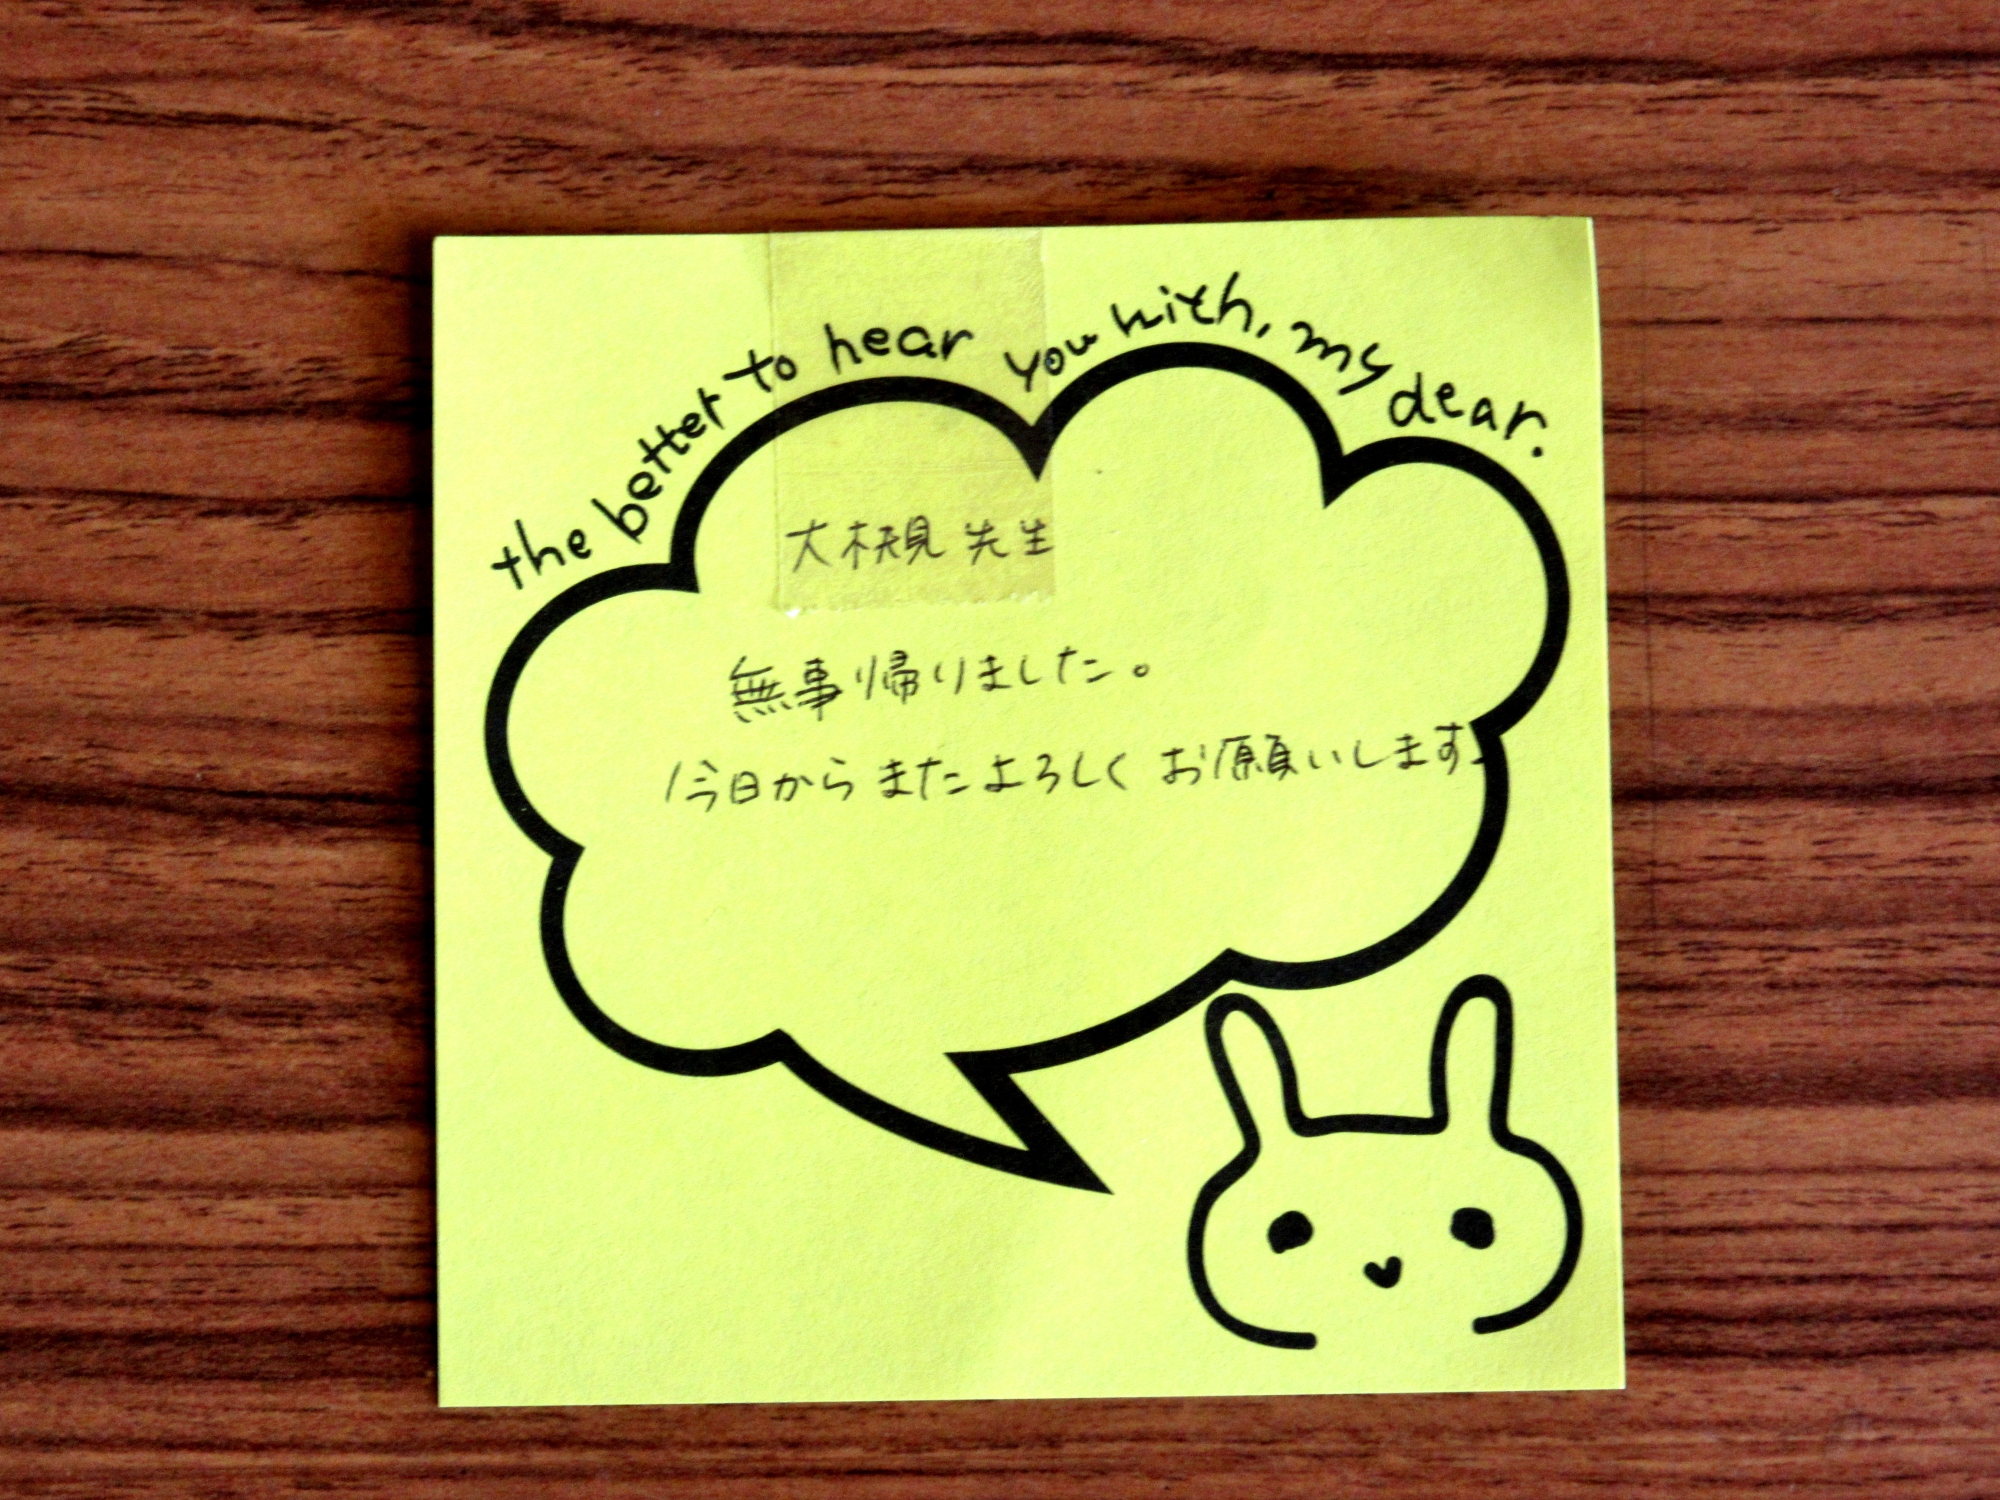 the better to hear you with, my dear.
大槻 先生
無事帰りました。
今日からまたよろしくお願いします。